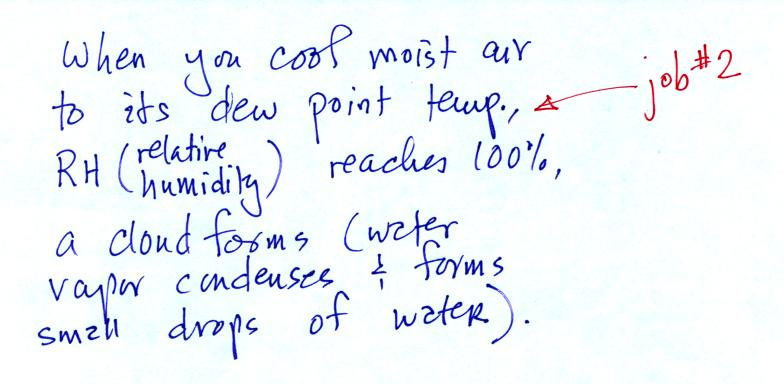 When you cool moist air
to its dew point temp., job #2
RH (relative humidity) reaches 100%,
a cloud forms (water
vapor condenses & forms
small drops of water).